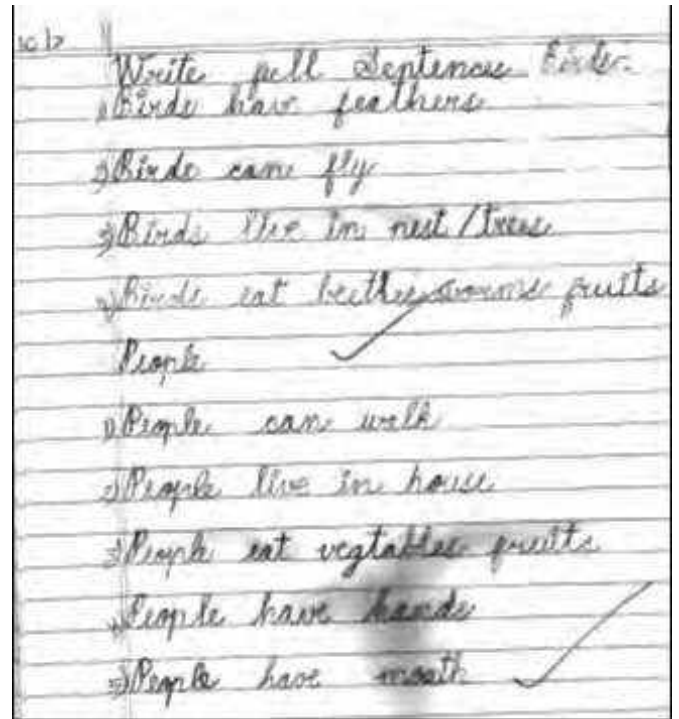 Write full Sentences Birds.
1) Birds have feathers
2) Birds can fly
3) Birds live in nest / trees
4) Birds eat beetles worms fruits
People
1) People can walk
2) People live in house
3) People eat vegtables fruits
4) People have hands
5) People have mouth